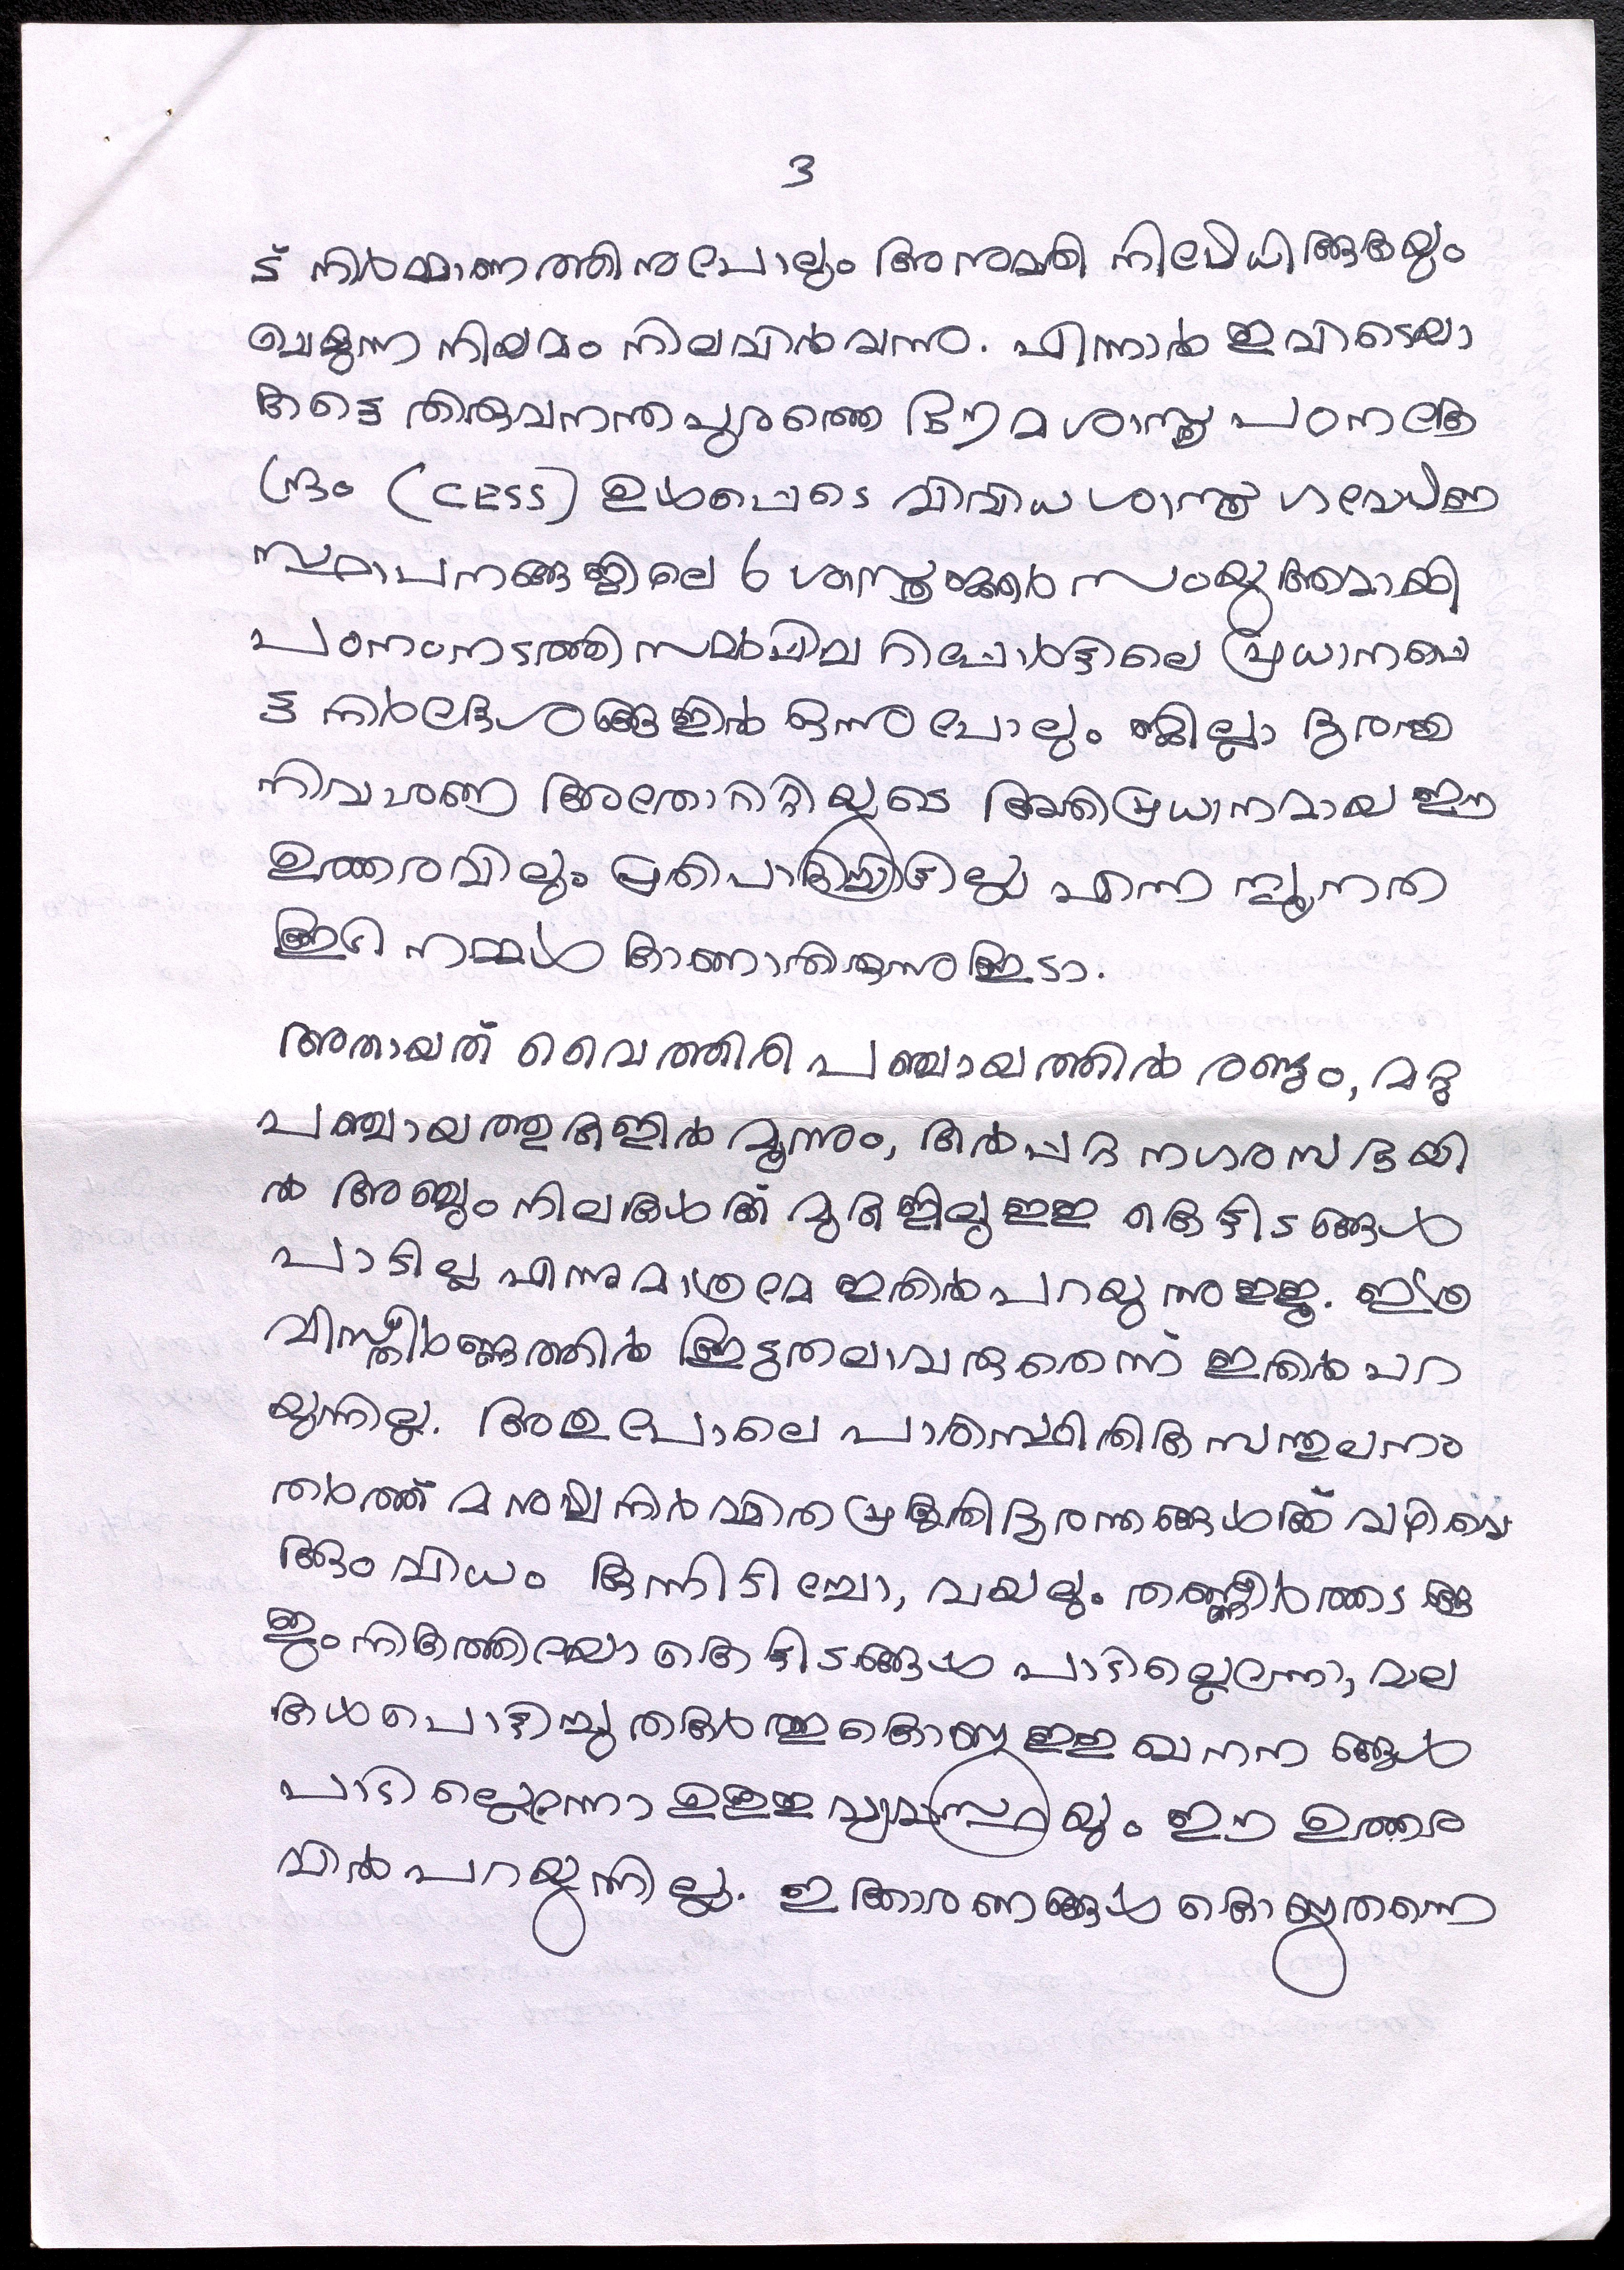 3
ട് നിർമ്മാണത്തിനുപോലും അനുമതി നിഷേധിക്കുകയും
ചെയ്യുന്ന നിയമം നിലവിൽ വന്നു. എന്നാൽ ഇവിടെയാ
കട്ടെ തിരുവനന്തപുരത്തെ ഭൗമശാസ്ത്ര പഠനകേ
ന്ദ്രം (CESS) ഉൾപ്പെടെ വിവിധ ശാസ്ത്ര ഗവേഷണ
സ്ഥാപനങ്ങളിലെ 6 ശാസ്ത്രജ്ഞർ സംയുക്തമായി
പഠനംനടത്തി സമർപ്പിച്ച റിപ്പോർട്ടിലെ പ്രധാനപ്പെ
ട്ട നിർദ്ദേശങ്ങളിൽ ഒന്നുപോലും ജില്ലാ ദുരന്ത
നിവാരണ അതോറിറ്റിയുടെ അതിപ്രധാനമായ ഈ
ഉത്തരവിലും പ്രതിപാദിച്ചിട്ടില്ല എന്ന ന്യൂനത
കൂടി നമ്മൾ കാണാതിരുന്നുകൂടാ.
അതായത് വൈത്തിരി പഞ്ചായത്തിൽ രണ്ടും, മറ്റു
പഞ്ചായത്തുകളിൽ മൂന്നും, കൽപ്പറ്റ നഗരസഭയി
ൽ അഞ്ചും നിലകൾക്ക് മുകളിലുള്ള കെട്ടിടങ്ങൾ
പാടില്ല എന്നുമാത്രമേ ഇതിൽ പറയുന്നുള്ളൂ. ഇത്ര
വിസ്തീർണ്ണത്തിൽ കൂടുതലാവരുതെന്ന് ഇതിൽ പറ
യുന്നില്ല. അതുപോലെ പാരിസ്ഥിതിക സന്തുലനം
തകർത്ത് മനുഷ്യനിർമ്മിത പ്രകൃതിദുരന്തങ്ങൾക്ക് വഴിവെ
ക്കും വിധം കുന്നിടിച്ചോ, വയലും തണ്ണീർത്തടങ്ങ
ളും നികത്തിയോ കെട്ടിടങ്ങൾ പാടില്ലെന്നോ, മല
കൾ പൊട്ടിച്ചു തകർത്തുകൊണ്ടുള്ള ഖനനങ്ങൾ
പാടില്ലെന്നോ ഉള്ള വ്യവസ്ഥയും ഈ ഉത്തര
വിൽ പറയുന്നില്ല. ഇക്കാരണങ്ങൾ കൊണ്ടുതന്നെ